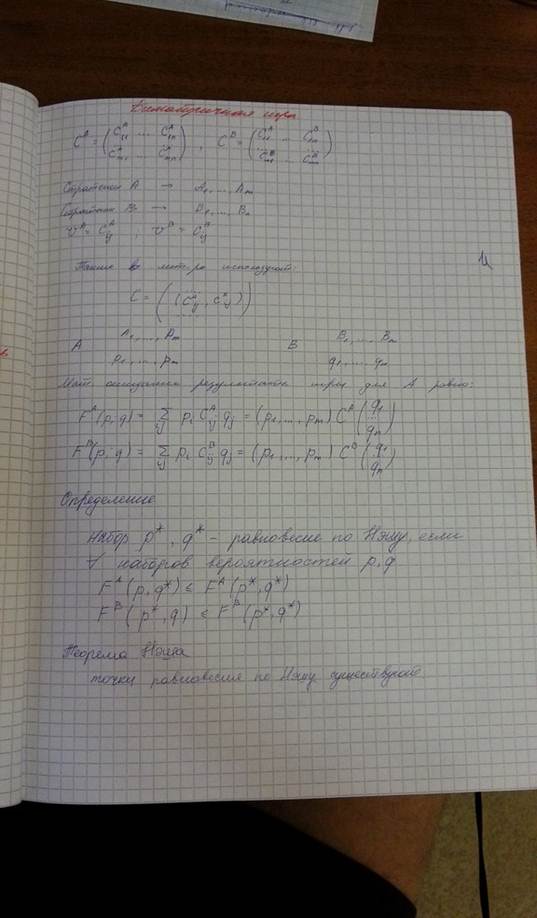 Биматричная игра
C^A = (C^A_11 ... C^A_1n / C^A_m1 ... C^A_mn), C^B = (C^B_11 ... C^B_1n / C^B_m1 ... C^B_mn)
Стратегии A → A₁,...,Aₘ
Стратегии B → B₁,...,Bₙ
v^A = C^A_ij, v^B = C^B_ij
Также используют:
C = ((C^A_ij, C^B_ij))
A₁,...,Pₘ B₁,...,Bₙ
A B
p₁,...,pₘ q₁,...,qₙ
Мат ожидание результата игры для A равно:
F^A(p,q) = Σ_ij p_i C^A_ij q_j = (p₁,...,pₘ) C^A (q₁ ... qₙ)
F^B(p,q) = Σ_ij p_i C^B_ij q_j = (p₁,...,pₘ) C^B (q₁ ... qₙ)
Определение
набор p*, q* - равновесие по Нэшу, если
∀ наборов вероятностей p, q
F^A(p,q*) ≤ F^A(p*,q*)
F^B(p*,q) ≤ F^B(p*,q*)
Теорема Нэша
точки равновесия по Нэшу существуют